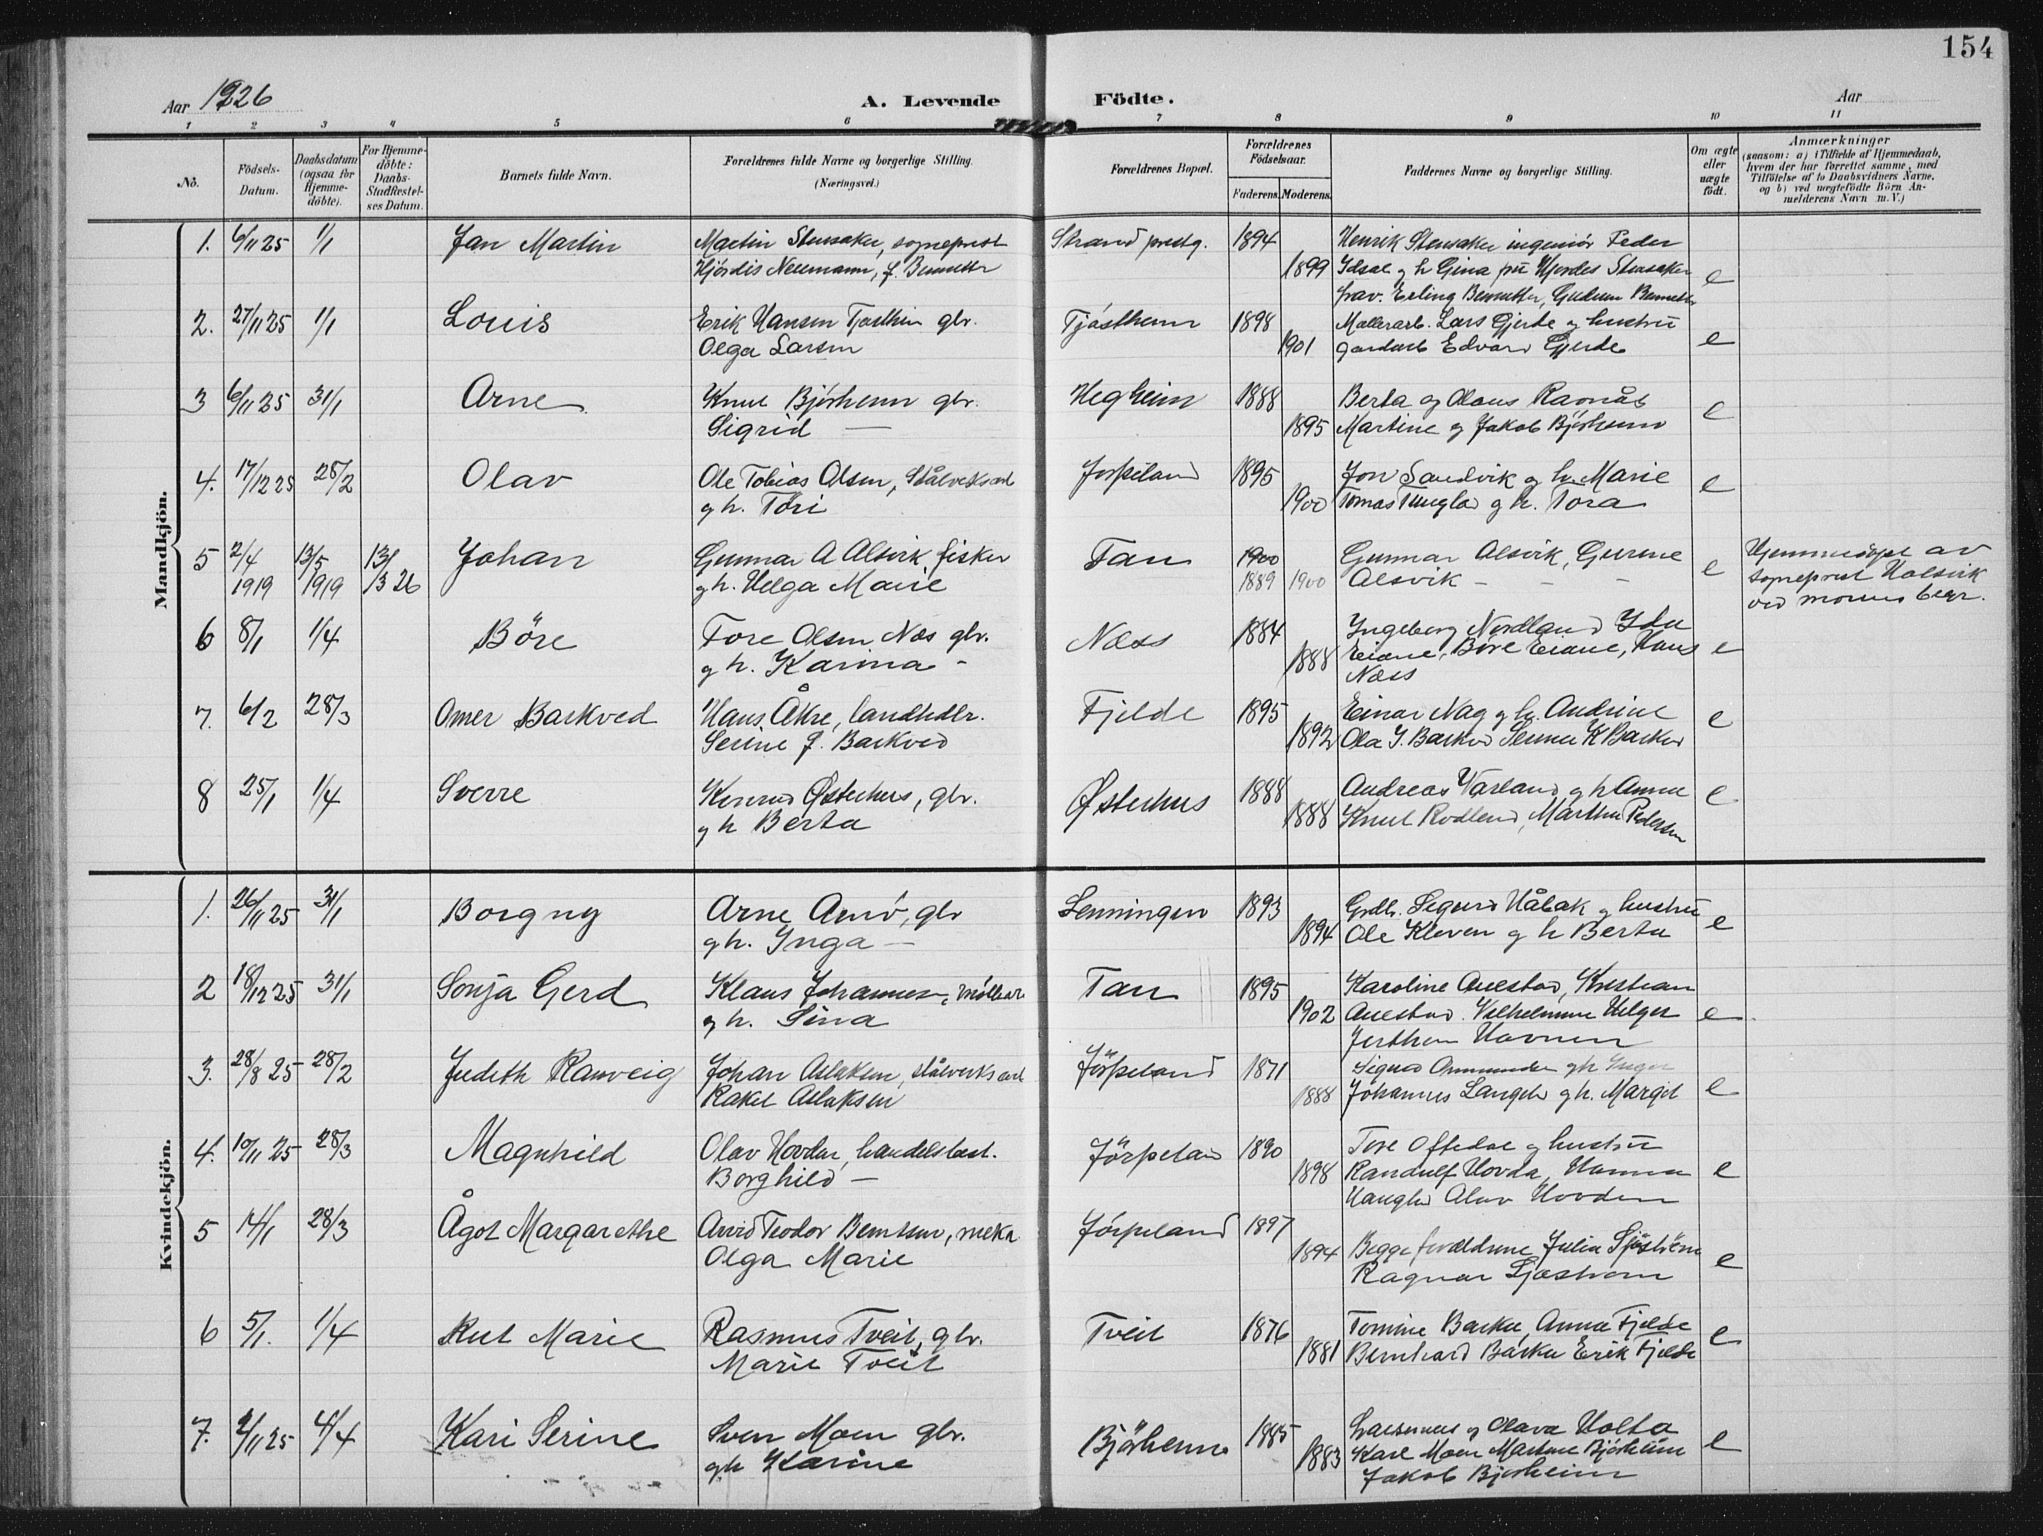 154
Aar 1926
A. Levende Födte.
Aar
1 2 3 4 5 6 7 8 9 10 11
No.
Födsels-Datum.
Daabsdatum (ogsaa for Hjemme-döbte).
For Hjemme-döbte: Daabs-Stadfæstel-ses Datum.
Barnets fulde Navn.
Forældrenes fulde Navne og borgerlige Stilling.
(Næringsvei.)
Forældrenes Bopæl.
Forældrenes Födselsaar.
Faderens. Moderens.
Faddernes Navne og borgerlige Stilling.
Om ægte eller uægte født.
Anmærkninger
(saasom: a) i Tilfælde af Hjemmedaab, hvem der har forrettet samme, med Tilföielse af to Daabsvidners Navne, og b) ved uægtefödte Börn Anmelderens Navn m. V.)
Mandkjön.
1. 6/11 25 1/1 Jan Martin Martin Stensaker, sogneprest Strand prestg. 1894 Henrik Stensaker ingeniör Peder
Hjördis Neumann, f. Bennetter 1899 Idsøe g h Gina fru Hjordes Stensaker e
frav. Erling Bennetter, Gudrun Bennetter
2. 27/11 25 1/1 Louis Erik Hansen Tjøsthem gbr. Tjøsthem 1898 Møllerarb. Lars Gjerde og hustru
Olga Larsen 1901 gardarb Edvard Gjerde e
3 6/11 25 31/1 Arne Knut Bjørheim gbr. Hegheim 1888 Berta og Olaus Ramås
Sigrid — 1895 Martine og Jakob Bjørheim e
4. 17/12 25 28/2 Olav Ole Tobias Olsen, Stålverksarb Jørpeland 1895 Jon Sandvik og h. Marie
g h. Töri 1900 Tomas Tungland g h. Tora e
5 2/4 1919 13/5 1919 13/ 13 26 Johan Gunnar A Alsvik, fisker Tau 1900 Gunnar Alsvik, Gurine
g h. Helga Marie 1889 1900 Alsvik - - - e
Hjemmedøpt av sogneprest Halsvik ved morens begr.
6 8/1 1/4 Böre Tore Olsen Næs gbr. Næss 1884 Ingeborg Nordland Ida
g h. Karina - 1888 Eiane, Böre Eiane, Hans e
Næss
7. 6/2 28/3 Omer Barkved Hans Åkre, landhdlr. Fjelde 1895 Einar Nag g h. Andrine
Serine f. Barkved 1892 Ola J. Barkved Serina K Barkved e
8 25/1 1/4 Sverre Konrad Østerhus, gbr. Østerhus 1888 Andreas Varland g h Anna
g h Berta 1888 Knut Rodland, Martha Pedersen e
Kvindekjön.
1. 26/11 25 31/1 Borgny Arne Amö, gbr Lenningen 1893 Grdbr. Sigurd Håbak og hustru
g h. Inga — 1894 Ole Kleven g h Berta e
2 18/12 25 31/1 Sonja Gerd Klaus Johannesen, möllearb Tau 1895 Karoline Auestad, Kristian
g h. Sina 1902 Auestad. Vilhelmine Helger e
Jerthem Havnen
3. 28/8 25 28/2 Judith Ranveig Johan Aslaksen, stålverksarb Jørpeland 1871 Sigurd Ommundsen g h Inger
Rakel Aslaksen 1888 Johannes Langeb g h. Margit e
4. 10/11 25 28/3 Magnhild Olav Hovden, handelsbest. Jørpeland 1890 Tore Oftedal og hustru
Borghild — 1898 Randulf Hovda, Hanna e
Haugland Olav Hovden
5 14/1 28/3 Ågot Margarethe Arvid Teodor Berntsen, mekn Jørpeland 1897
Olga Marie 1894 Begge foreldrene Julia Sjöström e
Ragnar Sjöstrøm
6 5/1. 1/4 Rut Marie Rasmus Tveit, gbr. Tveit 1876 Tomine Barka, Anna Fjelde
Marie Tveit 1881 Bernhard Barka Erik Fjelde e
7. 9/11 25 4/4 Kari Serine Sven Moen gbr. Bjørheim 1885 og Olava Holta
g h Karine 1883 Karl Moen Martine Bjørheim e
Jakob Bjørheim